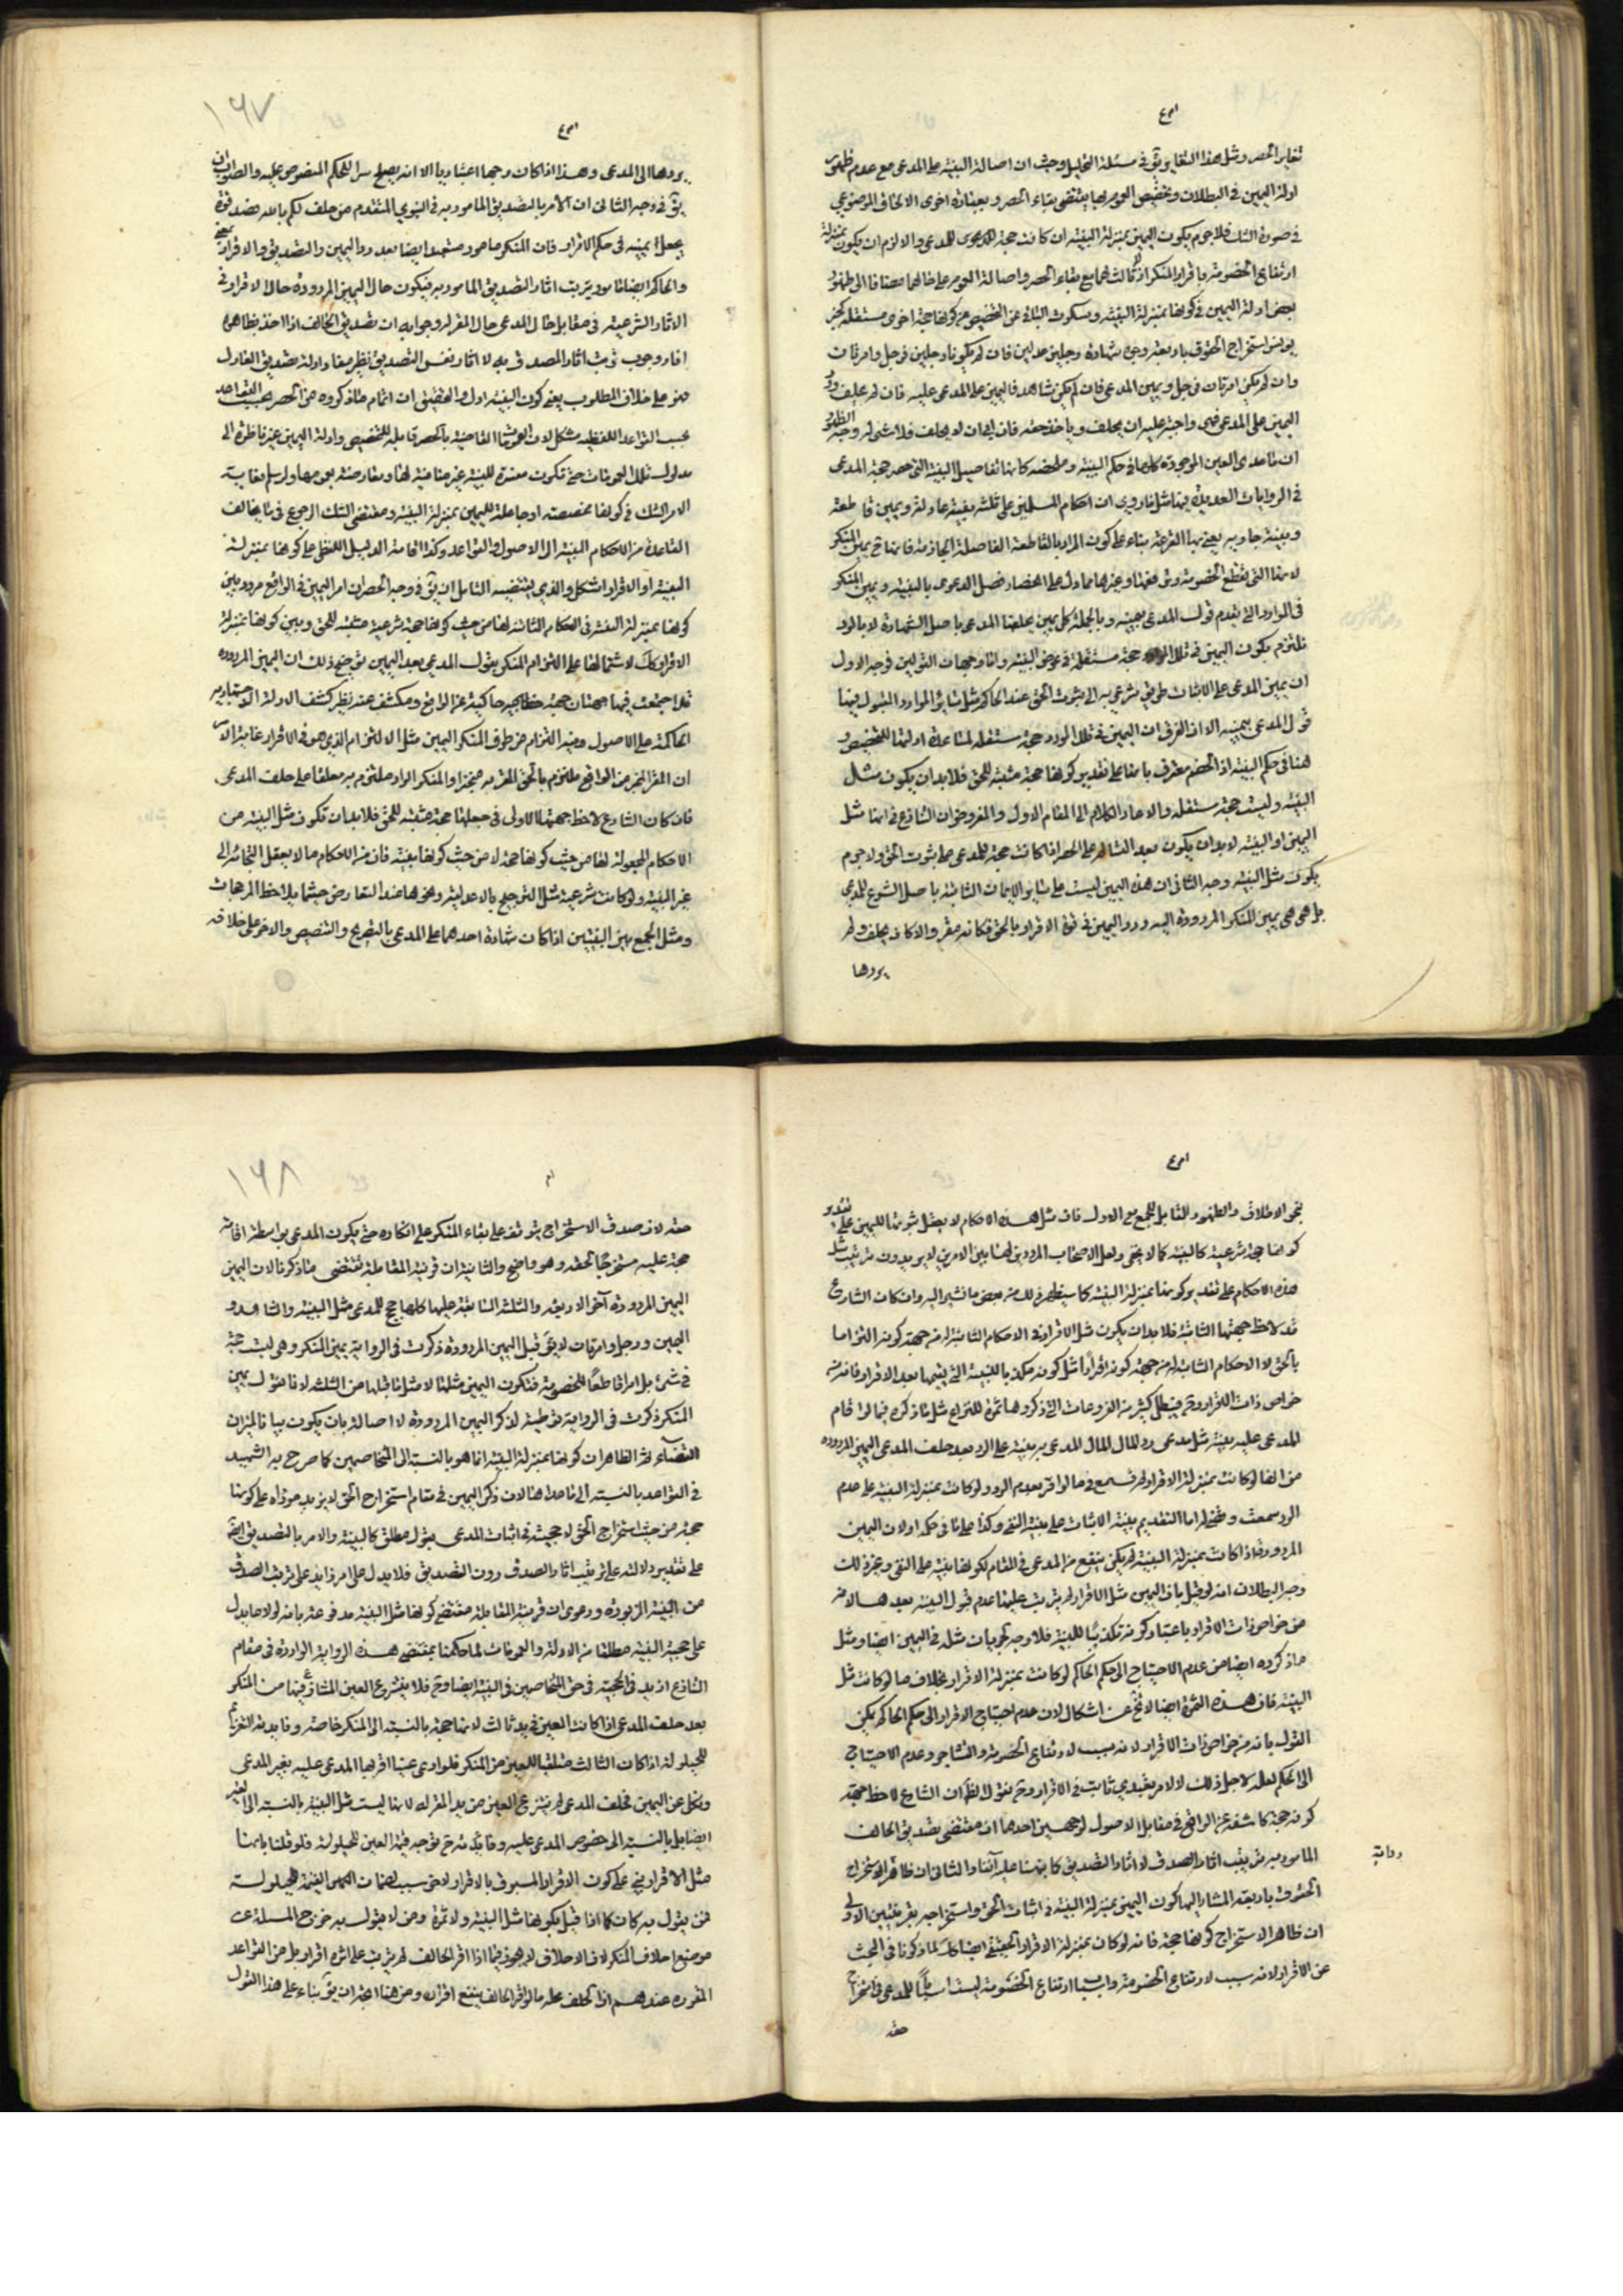 تغاير الحصر ومثل هذا التغاير يق في مسئلة التحليل وحيث ان اصالة البينة على المدعى مع عدم ظهور
ادلة اليمين في البطلان وتخصيص العموم بها يقتضي بقاء الحصر وبعبارة اخرى الالحاق الموضوعي
في صورة الشك فلا جرم يكون اليمين بمنزلة البينة ان كانت حجة للمدعى والا لزم ان يكون بمنزلة
ارتفاع الخصومة باقرار المنكر اذ لا ثالث لهما مع بقاء الحصر واصالة العموم على حالهما مضافا الى ظهور
بعض ادلة اليمين في كونها بمنزلة البينة وسكوت الباقي عن التخصيص من كونها حجة اخرى مستقلة كخبر
يونس استخراج الحقوق باربعة وجوه شهادة رجلين عدلين فان لم يكونا رجلين فرجل وامرئتان
وان لم يكن امرئتان فرجل ويمين المدعى فان لم يكن شاهد فاليمين على المدعى عليه فان لم يحلف ورد
اليمين على المدعى فهى واجبة عليه ان يحلف وياخذ حقه فان ابى ان لا يحلف فلا شئ له وجه الظهور
ان ما عدى اليمين الموجودة كلها في حكم البينة وملخصه كانها تفاصيل البينة التي هى حجة المدعى
في الروايات العديدة منها مثل ما روى ان احكام المسلمين على ثلثة بينة عادلة ويمين قاطعة
لانها التى تقطع الخصومة وترفعها وغيرها مما دل على انحصار فصل الدعوى بالبينة ويمين المنكر
في الموارد التى يقدم قول المدعى بيمينه وبالجملة كل يمين يحلفها المدعى باصل الشهادة لا بالرد
نلتزم بكون اليمين في تلك الموارد حجة مستقلة في عرض البينة واما وجهات القولين فوجه الاول
ان يمين المدعى على الاثبات طريق شرعى به الى ثبوت الحق عند الحاكم مثل سائر الموارد المقبول فيها
قول المدعى بيمينه الا ان الفرق ان اليمين في تلك الموارد حجة مستقلة لمساعدة ادلتها للتخصيص و
هنا في حكم البينة اذ الخصم معترف بانها على تقدير كونها حجة مثبتة للحق فلا بد ان يكون مثل
البينة وليست حجة مستقلة والا عاد الكلام الى المقام الاول والمفروض ان الشارع في انها مثل
اليمين او البينة لا بد ان يكون بعد البناء على الحصر اذا كانت حجة للمدعى على ثبوت الحق ولا جرم
يكون مثل البينة وجه الثانى ان هذه اليمين ليست على سائر الايمان الثابتة باصل الشرع للمدعى
بل هى هى يمين المنكر المردودة اليه ورد اليمين في قوة الاقرار بالحق فكانه مقر والا كان يحلف ولم
يردها
۱۶۷
يردها الى المدعى وهذا اذا كان وجها اعتباريا الا انه يصلح سرا للحكم المنصوص عليه والصواب ان
يق في وجه الثانى ان الامر بالتصديق المامور به في النبوى المتقدم من حلف لكم بالله فصدقوه
يجعل يمينه في حكم الاقرار فان المنكر مامور متعبد ايضا بعد رد اليمين والتصديق والاقرار
والحاكم ايضا مامور بترتب اثار التصديق المامور به فيكون حال اليمين المردودة حال الاقرار في
الاثار الشرعية في مقابل حال المدعى حال المقر له وجوابه ان تصديق الحالف اذا اخذ بظاهره
افاد وجوب ترتيب اثار المصدق به لا اثار نفس التصديق نظير مفاد ادلة تصديق العادل
فهو على خلاف المطلوب يعنى كون البينة اولى والتحقيق ان اتمام ما ذكروه من الحصر بحسب القواعد
بحسب القواعد اللفظية مشكل لان العمومات القاضية بالحصر قابلة للتخصيص وادلة اليمين غير ناظرة الى
مدلول تلك العمومات حتى تكون مفسرة للبينة غير منافية لها ومعارضة بعمومها ولو سلم فغاية
الامر الشك في كونها مخصصة او حاملة لليمين بمنزلة البينة ومقتضى الشك الرجوع في ما يخالف
القاعدة من الاحكام البينة الى الاصول والقواعد وكذا اقامة الدليل اللفظى على كونها بمنزلة
البينة او الاقرار اشكل والذى يقتضيه التامل ان يق في وجه الحصر ان امر اليمين في الواقع مردد بين
كونها بمنزلة البينة في الاحكام الثابتة لها من حيث كونها حجة شرعية مثبتة للحق وبين كونها بمنزلة
الاقرار كك لاشتمالها على التزام المنكر بقول المدعى بعد اليمين توضيح ذلك ان اليمين المردودة
قد اجتمعت فيها جهتان جهة خطابية حاكية عن الواقع ومكشف عنه نظير كشف الادلة الاجتهادية
الحاكمة على الاصول وجهة التزام من طرف المنكر اليمين مثل الالتزام الذى هو في الاقرار غاية الامر
ان المقر اخبر عن الواقع ملتزم بالحق المقر به منجزا والمنكر الراد ملتزم به معلقا على حلف المدعى
فان كان الشارع لاحظ جهتها الاولى في جعلها حجة مثبتة للحق فلا بد ان تكون مثل البينة من
الاحكام المجعولة لها من حيث كونها حجة لا من حيث كونها بينة فان من الاحكام ما لا يعقل التجائر الى
غير البينة ولو كانت شرعية مثل الترجيح بالاعدلية ونحوها عند التعارض حيثما يلاحظ المرجحات
ومثل الجمع بين البينتين اذا كان شهادة احدهما على المدعى بالتصريح والتنصيص والاخر على خلافه
بنحو الاطلاق والظهور القابل للجمع مع الاول فان مثل هذه الاحكام لا يعقل ثبوتها لليمين على تقدير
كونها حجة شرعية كالبينة كما لا يخفى ولعل الاصحاب المرددين لها بين الامرين لا يريدون ترتيب مثل
هذه الاحكام على تقدير كونها بمنزلة البينة كما سيظهر ذلك من بعض ما نشير اليه وان كان الشارع
قد لاحظ جهتها الثانية فلا بد ان يكون مثل الاقرار في الاحكام الثابتة له من جهة كونه التزاما
بالحق لا الاحكام الثابتة له من جهة كونه اقرارا مثل كونه مكذبا للبينة التى يقيمها بعد الاقرار فانه من
خواص ذات الاقرار وح فيبطل كثير من الفروعات التى ذكروها ثمرة للنزاع مثل ما ذكره فيما لو اقام
المدعى عليه بينة مثل مدعى رد المال المال المدعى به ببينة على الرد بعد حلف المدعى اليمين المردودة
من انها لو كانت بمنزلة الاقرار لم تسمع كما لو اقر بعدم الرد ولو كانت بمنزلة البينة على عدم
الرد سمعت
المردودة اذا كانت بمنزلة البينة لم يكن ينفع من المدعى في المقام لكونها بينة على النفى وغير ذلك
وجه البطلان انه لو قيل بان اليمين مثل الاقرار لم يترتب عليها عدم قبول البينة بعدها لانه
من خواص ذات الاقرار باعتبار كونه تكذيبا للبينة فلا وجه لجريان مثله في اليمين ايضا ومثل
ما ذكروه ايضا من عدم الاحتياج الى حكم الحاكم لو كانت بمنزلة الاقرار بخلاف ما لو كانت مثل
البينة فان هذه الثمرة ايضا لا تخ عن اشكال لان عدم احتياج الاقرار الى حكم الحاكم يمكن
القول بانه من خواص ذات الاقرار لانه سبب لارتفاع الخصومة والتشاجر وعدم الاحتياج
الى الحكم لعله لاجل ذلك لا لامر تعبدى ثابت في الاقرار وح نقول الظ ان الشارع لاحظ جهة
كونه حجة كاشفة عن الواقع في مقابل الاصول لوجهين احدهما انه مقتضى تصديق الحالف
المامور به ترتيب اثار الصدق لا اثار التصديق كما نبهنا عليه آنفا والثانى ان ظاهر استخراج
رواية
الحقوق باربعة المشار اليها كون اليمين بمنزلة البينة في اثبات الحق واستخراجه بقرينتين الاولى
ان ظاهر الاستخراج كونها حجة فانه لو كان بمنزلة الاقرار الحقيقى ايضا كك لما ذكرنا في البحث
عن الاقرار لانه سبب لارتفاع الخصومة واسباب ارتفاع الخصومة ليست اسبابا للمدعى في استخراج
حقه
۱۶۸
حقه لان صدق الاستخراج يتوقف على بقاء المنكر على انكاره حتى يكون المدعى بواسطة اقامة
حجة عليه مستخرجا لحقه وهو واضح والثانية ان قرينة المقابلة تقتضى ما ذكرنا لان اليمين
اليمين المردودة آخر الاربعة والثلثة السابقة عليها كلها حجج للمدعى مثل البينة والشاهد و
اليمين ورجل وامرئتان لا يق قبل اليمين المردودة ذكرت في الرواية يمين المنكر وهى ليست حجة
في شئ بل امرا قاطعا للخصومة فتكون اليمين مثلها لا مثل ما قبلها من الثلثة لانا نقول يمين
المنكر ذكرت في الرواية توطئة لذكر اليمين المردودة لا اصالة بان يكون بيانا لميزان
القضاء ثم الظاهر ان كونها بمنزلة البينة انما هو بالنسبة الى المتخاصمين كما صرح به الشهيد
في القواعد بالنسبة الى ما عداها لان ذكر اليمين في مقام استخراج الحق لا يزيد مؤداه على كونها
حجة من حيث استخراج الحق لا حجية في اثبات المدعى بقول مطلق كالبينة والامر بالتصديق ايضا
على تقدير دلالته على ترتيب اثار الصدق دون التصديق فلا يدل على امر زايد على ترتيب الصدق
من البينة المزبورة ودعوى ان قرينة المقابلة مقتضى كونها مثل البينة مدفوعة بانه لولا ما يدل
على حجية البينة مطلقا من الادلة والعمومات لما حكمنا بمقتضى هذه الرواية الواردة في مقام
التنازع ازيد في الحجية في حق المتخاصمين في البينة ايضا وح فلا ينتزع العين المتنازع فيها من المنكر
بعد حلف المدعى اذا كانت العين في يد ثالث لانها حجة بالنسبة الى المنكر خاصة وفايدته الغرم
للحيلولة اذا كان الثالث متلقيا للعين من المنكر فلو ادعى عينا اقر بها المدعى عليه بغير المدعى
ونكل عن اليمين فحلف المدعى لم ينتزع العين من يد المقر له لانها ليست مثل البينة بالنسبة الى الغير
ايضا بل بالنسبة الى خصوص المدعى عليه وفايدته ح توجه قيمة العين للحيلولة فلو قلنا بانها
مثل الاقرار بنى على كون الاقرار المسبوق بالاقرار لاخر سبب لضمان المقر القيمة للحيلولة
فمن يقول به كان كما اذا قيل بكونها مثل البينة ولا ثمرة ومن لا يقول به خرج المسئلة عن
موضع احلاف المنكر لان الاحلاف انما هو فيما اذا اقر الحالف لم يترتب على اثره اقرار بل من القواعد
المقررة عندهم ان الحلف محله ما لو اقر الحالف ينفع اقراره ومن هنا اتجه ان يق بناء على هذا القول